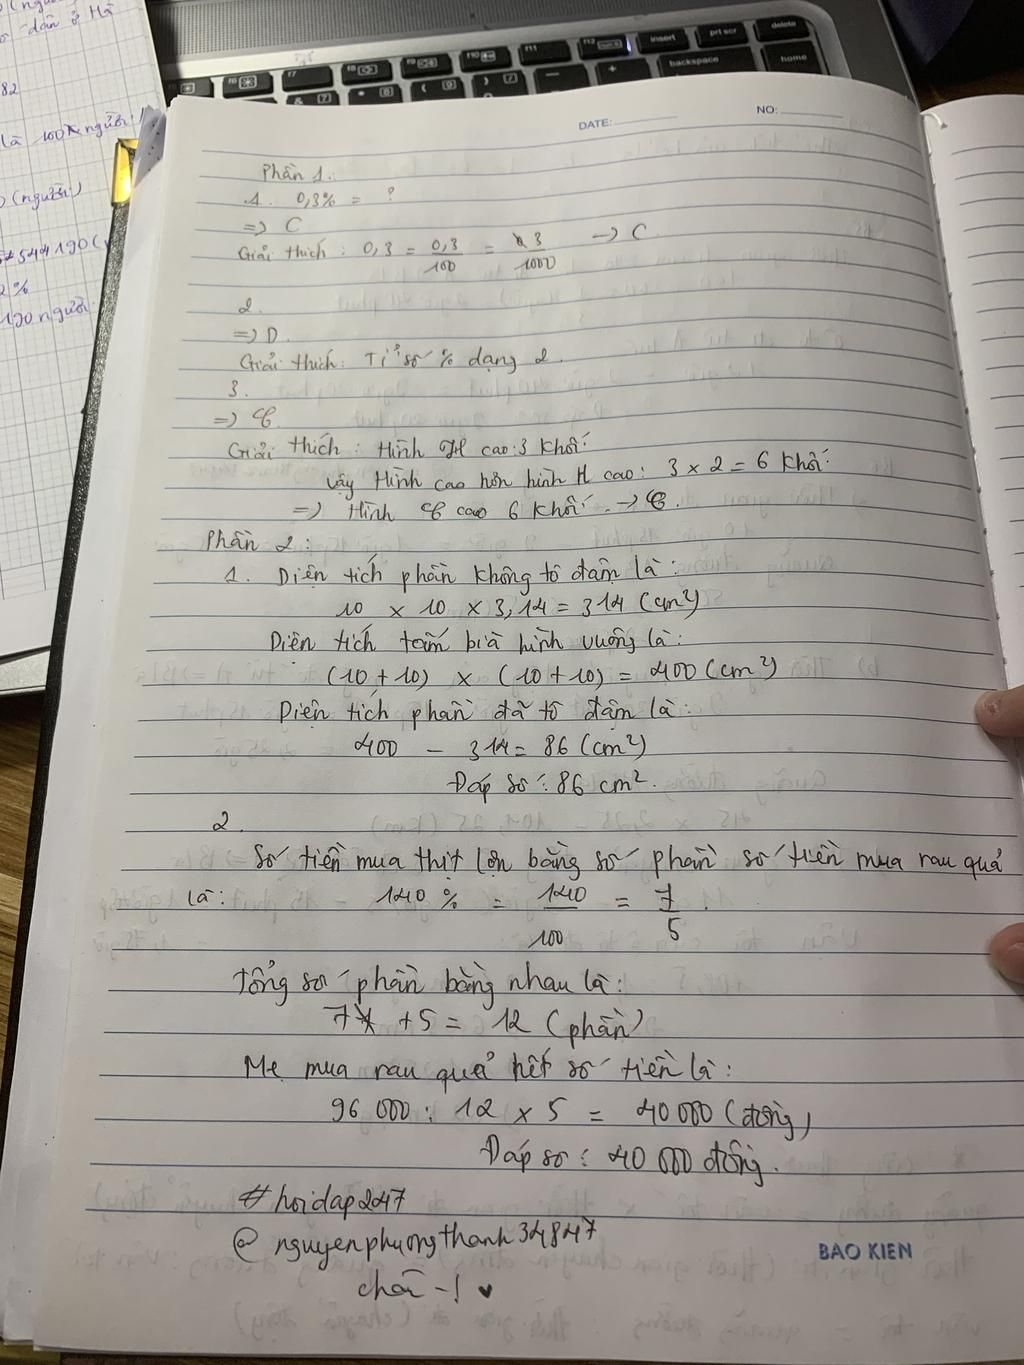 dân ở Hà
82
là 100% người
(người)
544190
2%
190 người
f7
f11
f12
insert
prt scr
delete
backspace
home
DATE:
NO:
Phần 1:
1. 0,3% = ?
=> C
Giải thích: 0,3 = 0,3/100 = 3/1000 -> C
2.
=> D.
Giải thích: Tỉ số % dạng 2.
3.
=> C
Giải thích: Hình H cao: 3 khối
Vậy Hình cao hơn hình H cao: 3 x 2 = 6 khối
=> Hình C cao 6 khối. -> C.
Phần 2:
1. Diện tích phần không tô đậm là:
10 x 10 x 3,14 = 314 (cm²)
Diện tích tấm bìa hình vuông là:
(10 + 10) x (10 + 10) = 400 (cm²)
Diện tích phần đã tô đậm là:
400 - 314 = 86 (cm²)
Đáp số: 86 cm².
2.
Số tiền mua thịt lợn bằng số phần số tiền mua rau quả
là: 140% = 140/100 = 7/5.
Tổng số phần bằng nhau là:
7 + 5 = 12 (phần)
Mẹ mua rau quả hết số tiền là:
96 000 : 12 x 5 = 40 000 (đồng)
Đáp số: 40 000 đồng.
#hoidap247
@nguyenphuongthanh34847
BAO KIEN